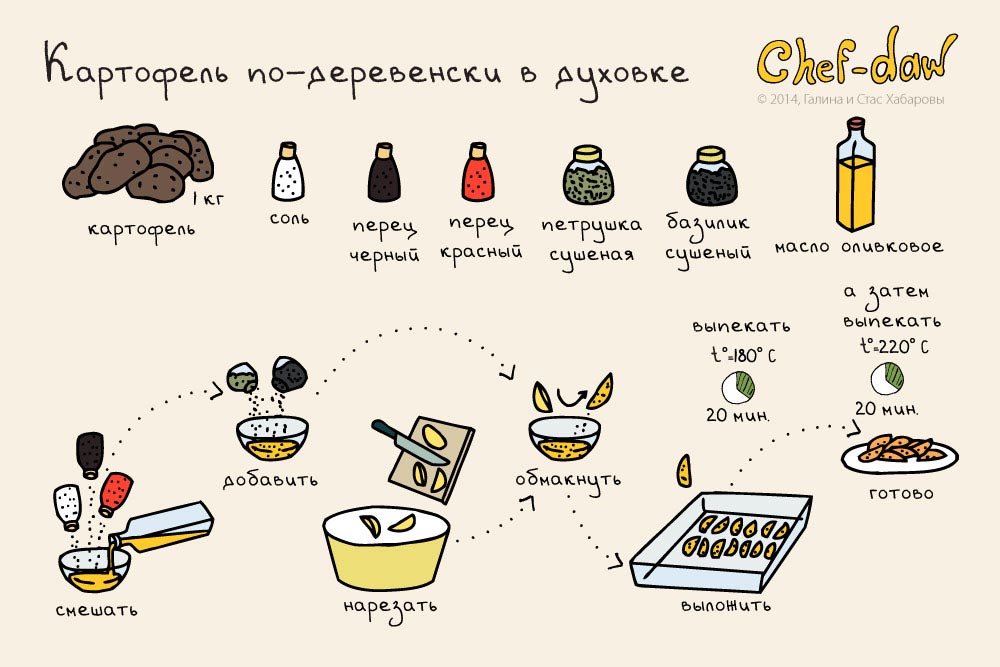 Картофель по-деревенски в духовке
Chef-daw
© 2014, Галина и Стас Хабаровы
1 кг
картофель
соль
перец
черный
перец
красный
петрушка
сушеная
базилик
сушеный
масло оливковое
смешать
добавить
нарезать
обмакнуть
выложить
выпекать
t°=180° C
20 мин.
а затем
выпекать
t°=220° C
20 мин.
готово